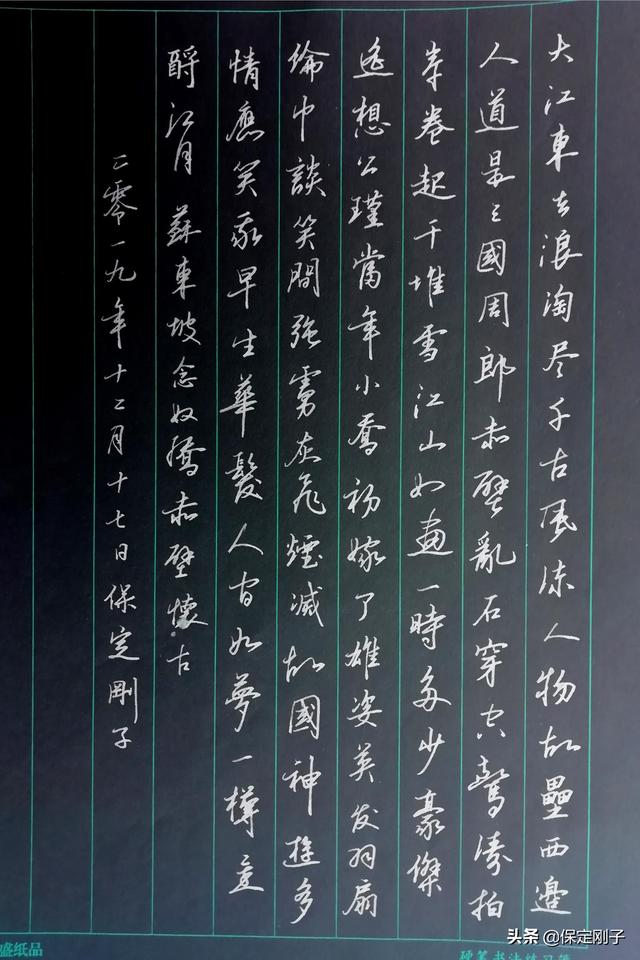 大江東去浪淘尽千古風流人物故壘西邊
人道是三國周郎赤壁亂石穿空驚濤拍
岸卷起千堆雪江山如畫一時多少豪傑
遙想公瑾當年小喬初嫁了雄姿英发羽扇
綸巾談笑間強虜灰飛煙滅故國神遊多
情應笑我早生華髮人间如夢一樽还
酹江月 蘇東坡念奴嬌赤壁懷古
二零一九年十二月十七日保定剛子
盛纸品
硬笔书法练习
头条 @保定刚子